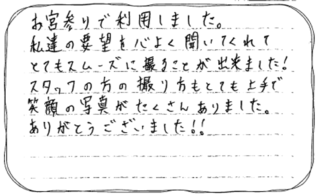 お宮参りで利用しました。
私達の要望を心よく聞いてくれて
とてもスムーズに撮ることが出来ました!
スタッフの方の撮り方もとても上手で
笑顔の写真がたくさんありました。
ありがとうございました!!